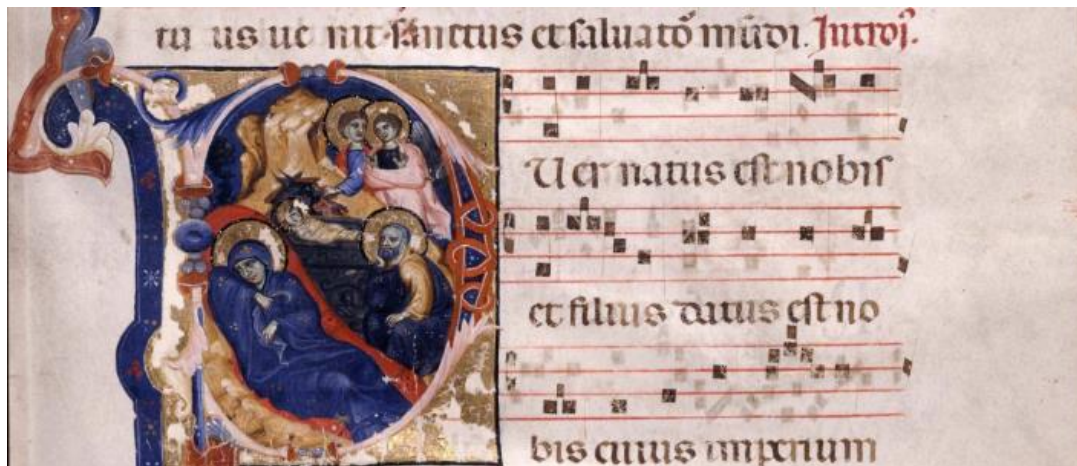 tu us ue nit sanctus et saluatō mūdi. Introi.
Uer natus est nobis
et filius datus est no
bis cuius imperium